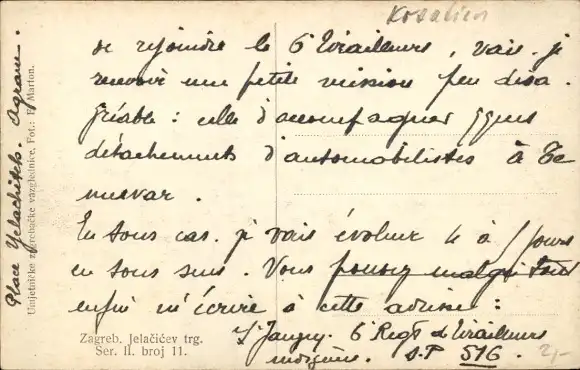 Kroatien
de rejoindre le 6 Tirailleurs, vais-je
recevoir une petite mission peu désa-
gréable : celle d'accompagner qques
détachements d'automobilistes à Te
mesvar.
En tous cas, je vais évoluer 4 à 5 jours
en tous sens. Vous pouvez malgré tout
enfin m'écrire à cette adresse :
6 Regt de Tirailleurs
indigènes. S.P 516.
2,-
Place Yelachitch. Agram.
Umjetničke zagrebačke vazglednice, Fot.: F. Marton.
Zagreb. Jelačićev trg.
Ser. II. broj 11.